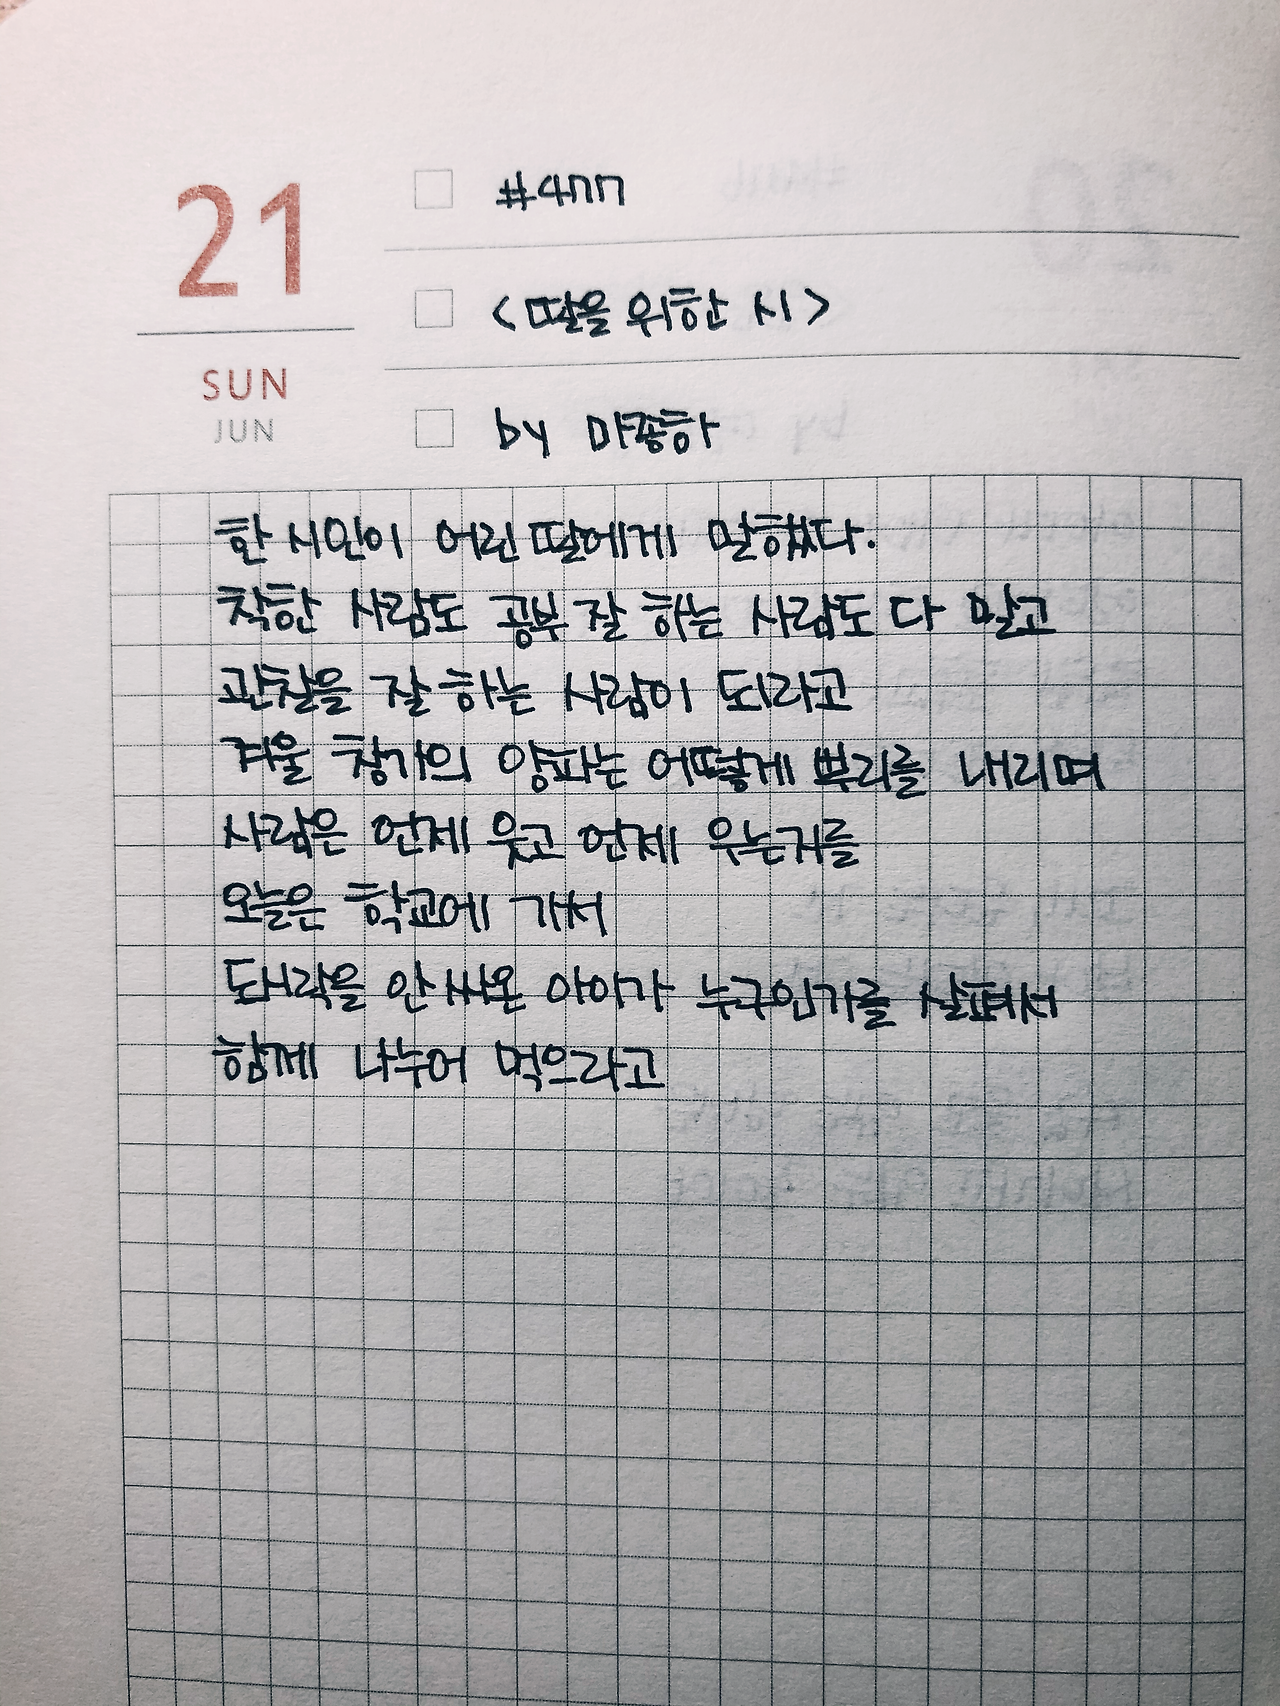 21
SUN
JUN
#477
<딸을 위한 시>
by 마종하
한 시인이 어린 딸에게 말했다.
착한 사람도 공부 잘 하는 사람도 다 말고
관찰을 잘 하는 사람이 되라고
겨울 창가의 양파는 어떻게 뿌리를 내리며
사람은 언제 웃고 언제 우는거를
오늘은 학교에 가서
도시락을 안 싸온 아이가 누구인가를 살펴서
함께 나누어 먹으라고